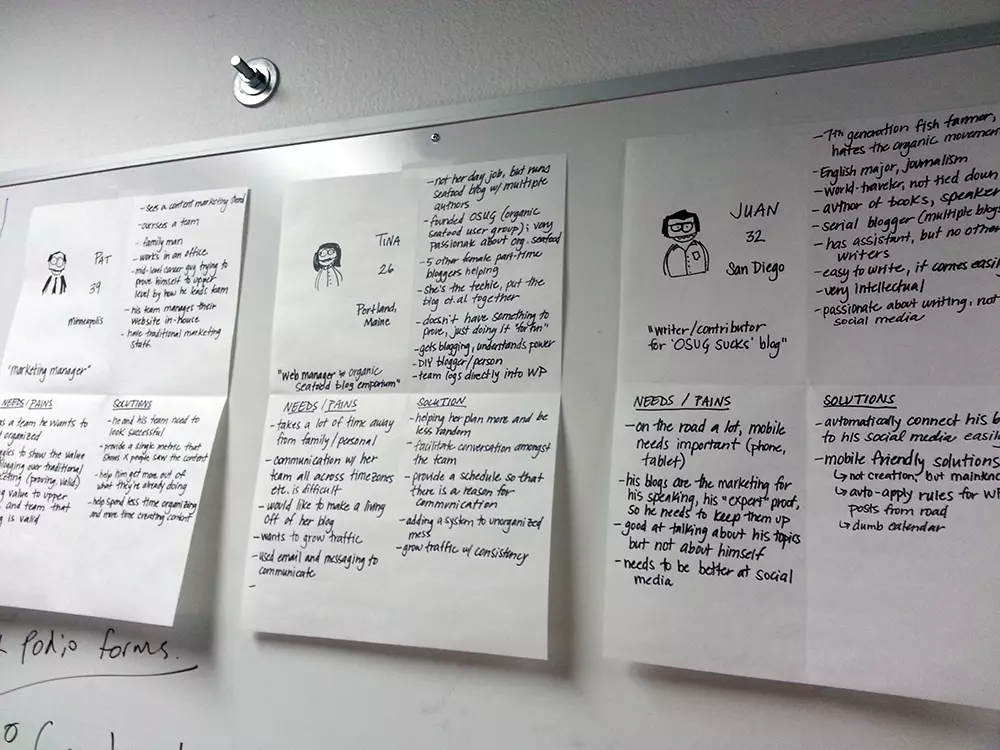 PAT
39
Minneapolis
"Marketing manager"
- sees a content marketing trend
- oversees a team
- family man
- works in an office
- mid-level career guy trying to
prove himself to upper
level by how he leads team
- his team manages their
website in-house
- have traditional marketing
staff
NEEDS / PAINS
as a team he wants to
organized
to show the value
blogging over traditional
marketing (proving valid)
value to upper
and team that
is valid
SOLUTIONS
- he and his team need to
look successful
- provide a single metric that
shows X people saw the content
- help him get more out of
what they're already doing
- help spend less time organizing
and more time creating content
TINA
26
Portland,
Maine
"Web manager organic
seafood blog emporium"
- not her day job, but runs
seafood blog w/ multiple
authors
- founded OSUG (organic
seafood user group); very
passionate about org. seafood
- 5 other female part-time
bloggers helping
- she's the techie, put the
blog et. al together
- doesn't have something to
prove, just doing it "for fun"
- gets blogging, understands power
- DIY blogger/person
- team logs directly into WP
NEEDS / PAINS
- takes a lot of time away
from family / personal
- communication w/ her
team all across timezones
etc. is difficult
- would like to make a living
off of her blog
- wants to grow traffic
- used email and messaging to
communicate
-
SOLUTION
- helping her plan more and be
less random
- facilitate conversation amongst
the team
- provide a schedule so that
there is a reason for
communication
- adding a system to unorganized
mess
- grow traffic w/ consistency
JUAN
32
San Diego
"writer/contributor
for 'OSUG SUCKS' blog"
- 7th generation fish farmer,
hates the organic movement
- English major, journalism
- World-traveler, not tied down
- author of books, speaker
- serial blogger (multiple blogs
- has assistant, but no other
writers
- easy to write, it comes easil
- very intellectual
- passionate about writing, not
social media
NEEDS / PAINS
- on the road a lot, mobile
needs important (phone,
tablet)
- his blogs are the marketing for
his speaking, his "expert" proof,
so he needs to keep them up
- good at talking about his topics
but not about himself
- needs to be better at social
media
SOLUTIONS
- automatically connect his b
to his social media easil
- mobile friendly solutions
↳ not creation, but
↳ auto-apply rules for W
posts from road
↳ dumb calendar
Podio forms.